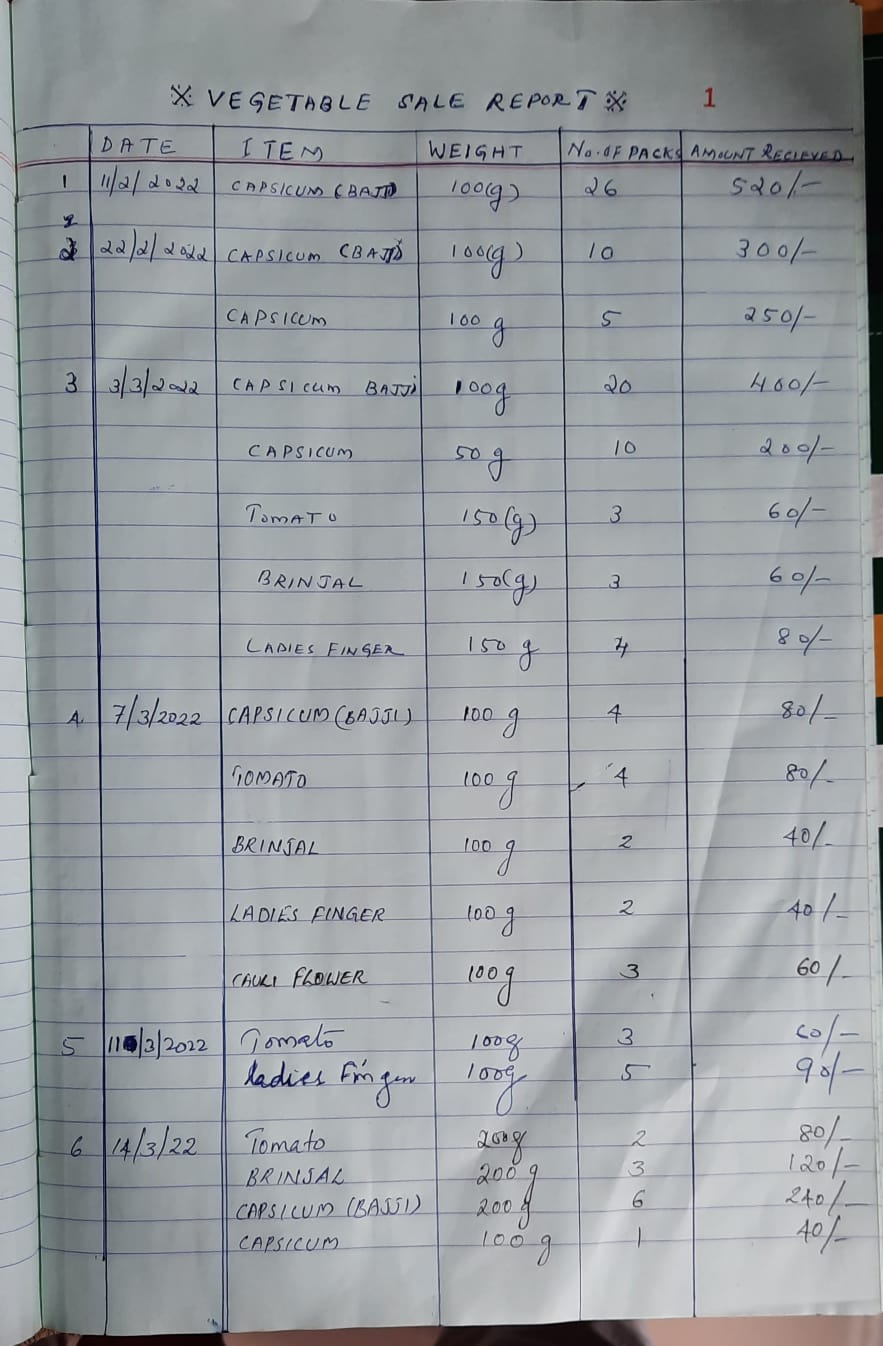 ※ VEGETABLE SALE REPORT ※ 1
DATE ITEM WEIGHT No. OF PACKS AMOUNT RECIEVED
1 11/2/2022 CAPSICUM (BAJJI) 100(g) 26 520/-
2 22/2/2022 CAPSICUM (BAJJI) 100(g) 10 300/-
CAPSICUM 100 g 5 250/-
3 3/3/2022 CAPSICUM BAJJI 100g 20 400/-
CAPSICUM 50 g 10 200/-
TOMATO 150(g) 3 60/-
BRINJAL 150(g) 3 60/-
LADIES FINGER 150 g 4 80/-
4. 7/3/2022 CAPSICUM (BAJJI) 100 g 4 80/-
TOMATO 100 g 4 80/-
BRINJAL 100 g 2 40/-
LADIES FINGER 100 g 2 40/-
CAULI FLOWER 100 g 3 60/-
5 11/3/2022 Tomato 100g 3 60/-
ladies Finger 100g 5 90/-
6 14/3/22 Tomato 200g 2 80/-
BRINJAL 200 g 3 120/-
CAPSICUM (BAJJI) 200 g 6 240/-
CAPSICUM 100 g 1 40/-